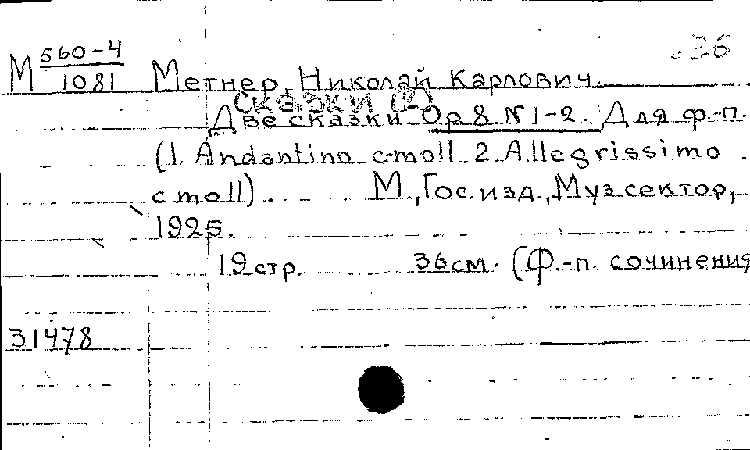 М 560-4 / 1081
Метнер, Николай Карлович.
Сказки (2)
Две сказки Op 8 N 1-2. Для ф.-п.
(1. Andantino c moll 2. Allegrissimo
c moll) М., Гос. изд., Муз сектор,
1925.
19 стр. 36 см. (Ф.-п. сочинения
31478